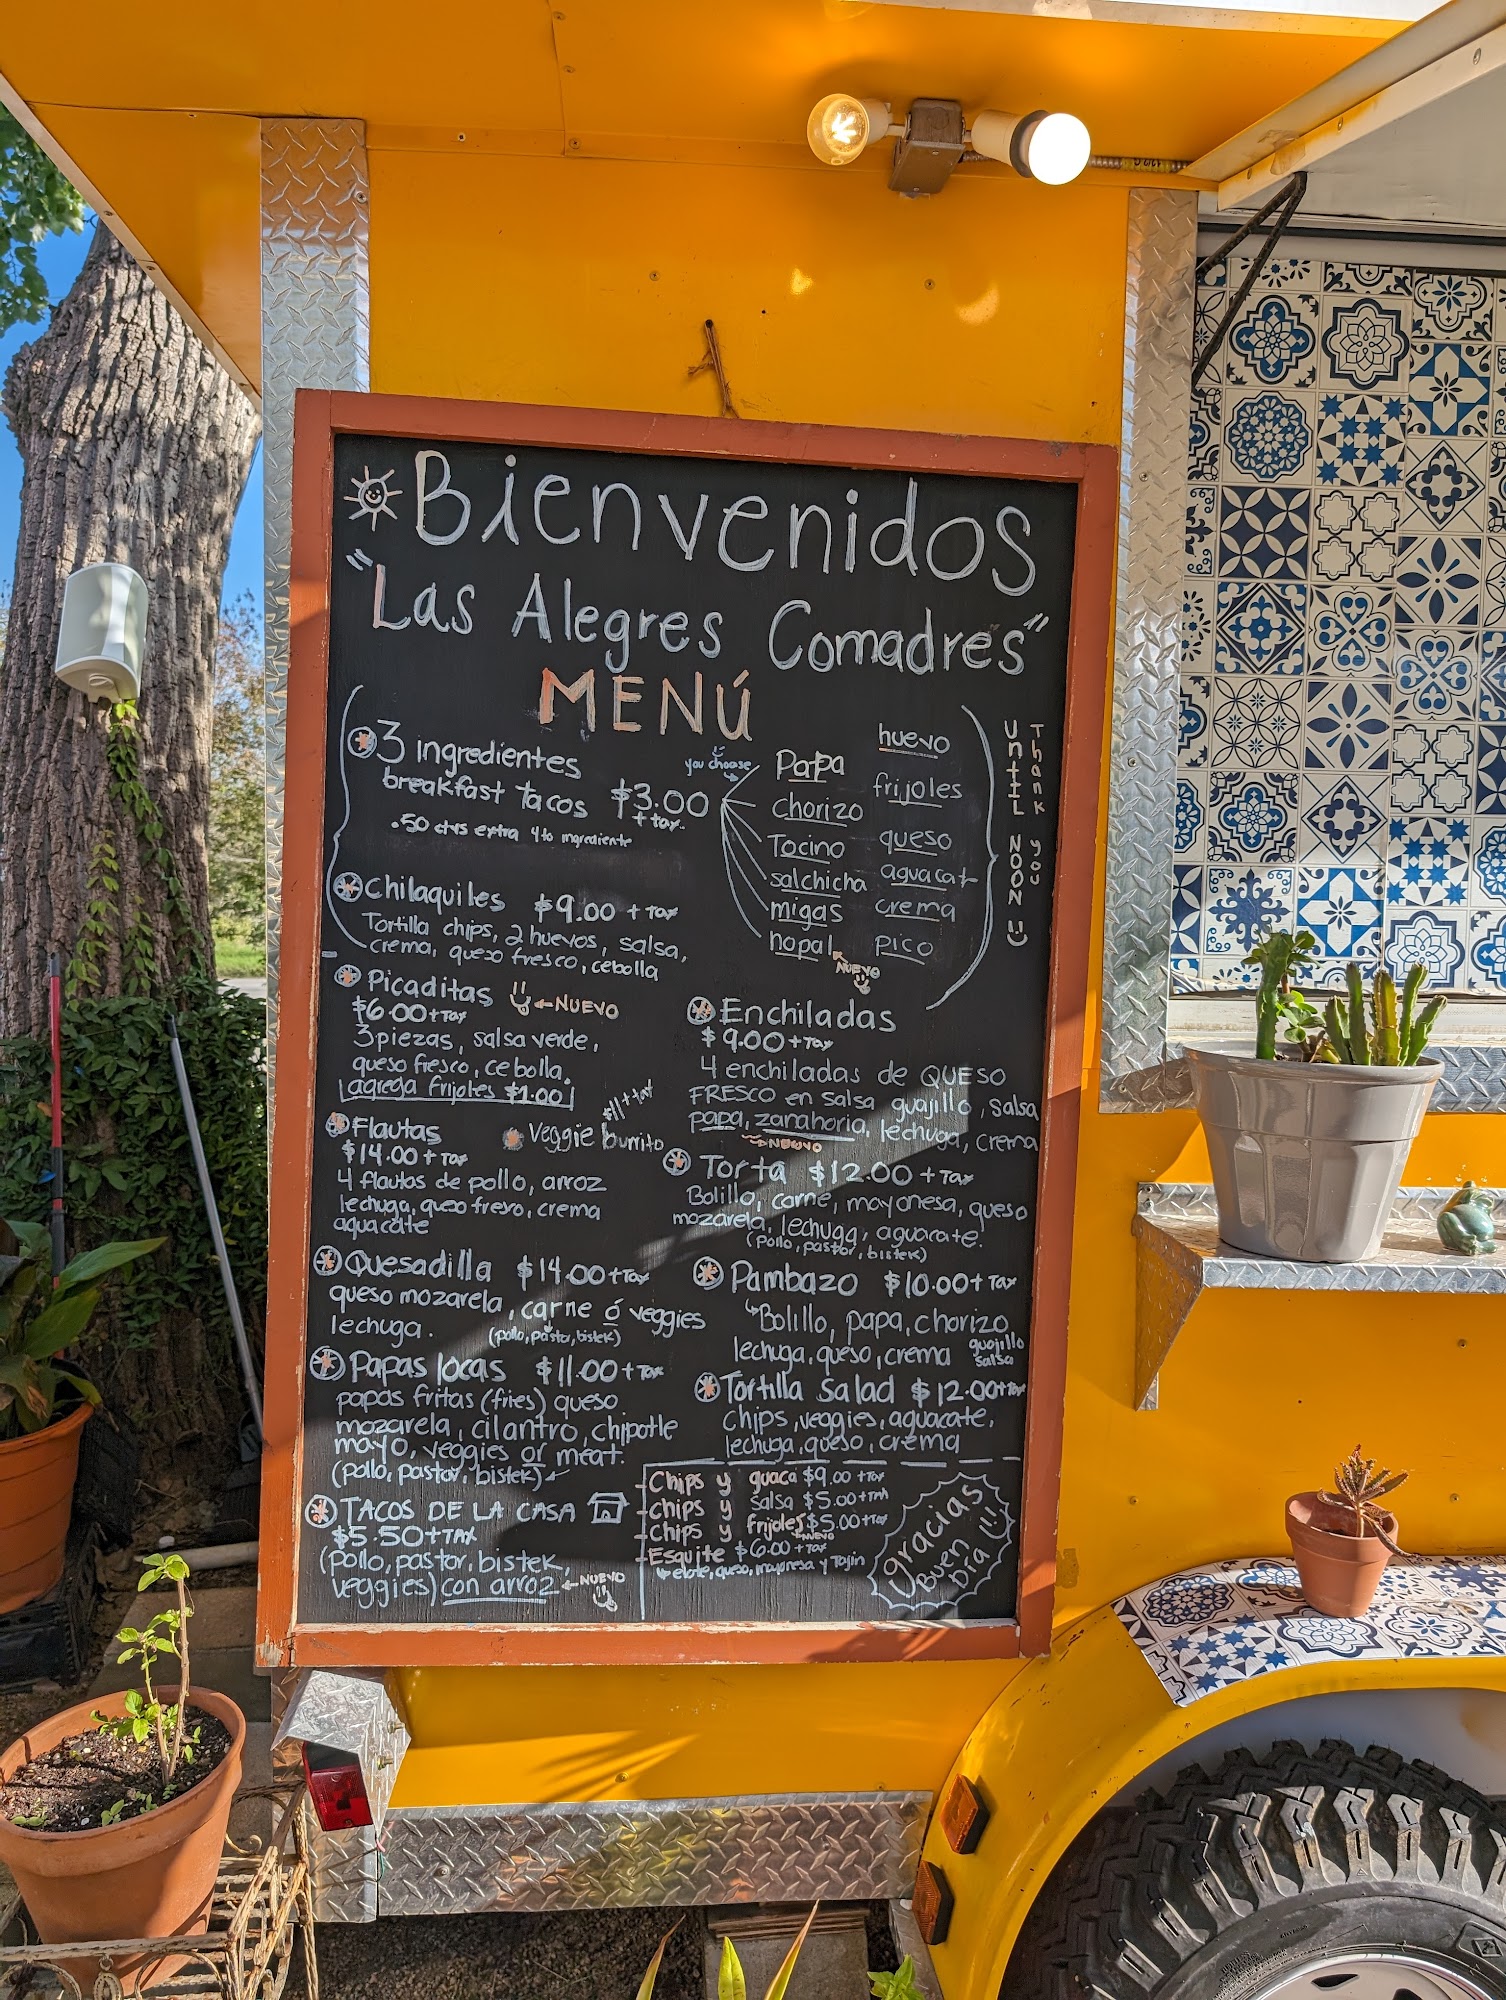 Bienvenidos
"Las Alegres Comadres"
MENÚ
3 ingredientes
breakfast tacos $3.00
+ tax.
.50 ctvs extra 4to ingrediente
you choose
Papa
chorizo
Tocino
salchicha
migas
nopal
NUEVO
huevo
frijoles
queso
aguacat
crema
pico
Thank you
UNTIL NOON
Chilaquiles $9.00 + Tax
Tortilla chips, 2 huevos, salsa,
crema, queso fresco, cebolla
Picaditas ← NUEVO
$6.00 + Tax
3 piezas, salsa verde,
queso fresco, cebolla.
agrega frijoles $1.00
Flautas
$14.00 + Tax
4 flautas de pollo, arroz
lechuga, queso fresco, crema
aguacate
Veggie burrito
$11 + tax
Quesadilla $14.00 + Tax
queso mozarela, carne ó veggies
lechuga. (pollo, pastor, bistek)
Papas locas $11.00 + Tax
papas fritas (fries) queso
mozarela, cilantro, chipotle
mayo, veggies or meat.
(pollo, pastor, bistek)
TACOS DE LA CASA
$5.50 + TAX
(pollo, pastor, bistek,
veggies) con arroz ← NUEVO
Enchiladas
$9.00 + Tax
4 enchiladas de QUESO
FRESCO en salsa guajillo, salsa
papa, zanahoria, lechuga, crema
NUEVO
Torta $12.00 + Tax
Bolillo, carne, mayonesa, queso
mozarela, lechuga, aguacate.
(pollo, pastor, bistek)
Pambazo $10.00 + Tax
Bolillo, papa, chorizo
lechuga, queso, crema guajillo
salsa
Tortilla Salad $12.00 + Tax
chips, veggies, aguacate,
lechuga, queso, crema
Chips y guaca $9.00 + Tax
Chips y salsa $5.00 + TAX
Chips y frijoles $5.00 + Tax
NUEVO
Esquite $6.00 + Tax
elote, queso, mayonesa y Tajin
¡gracias
Buen
día!